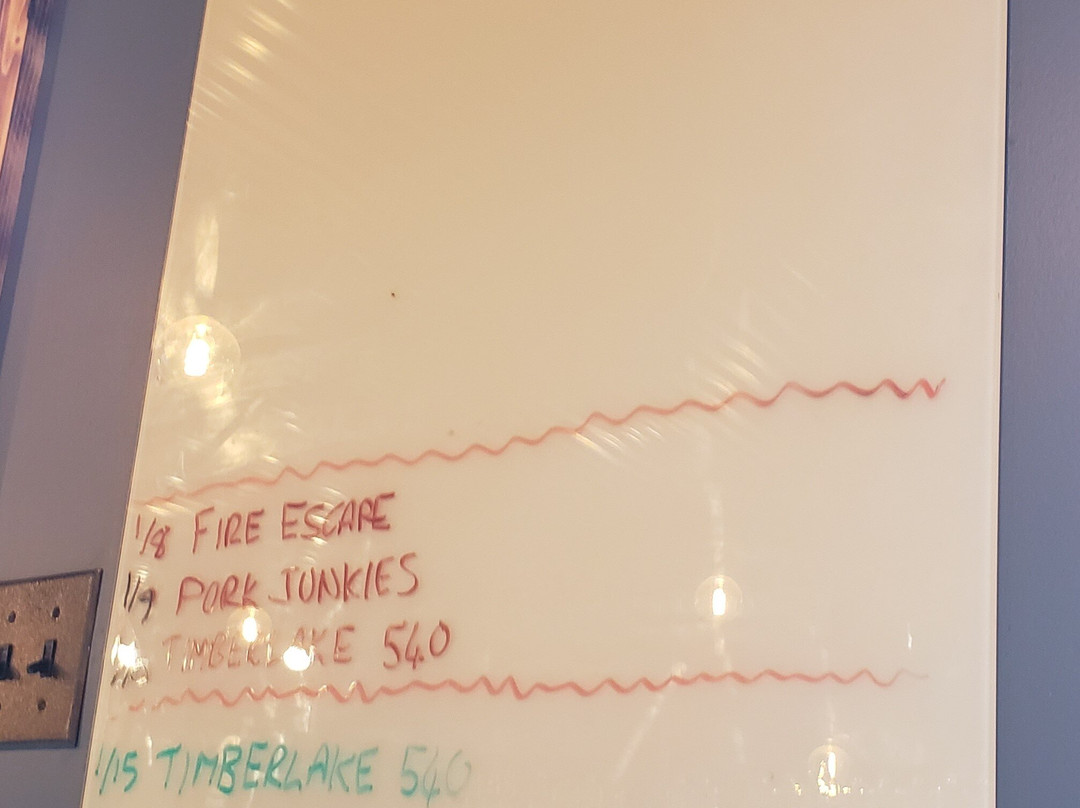 1/8 FIRE ESCAPE
1/9 PORK JUNKIES
TIMBERLAKE 540
1/15 TIMBERLAKE 540